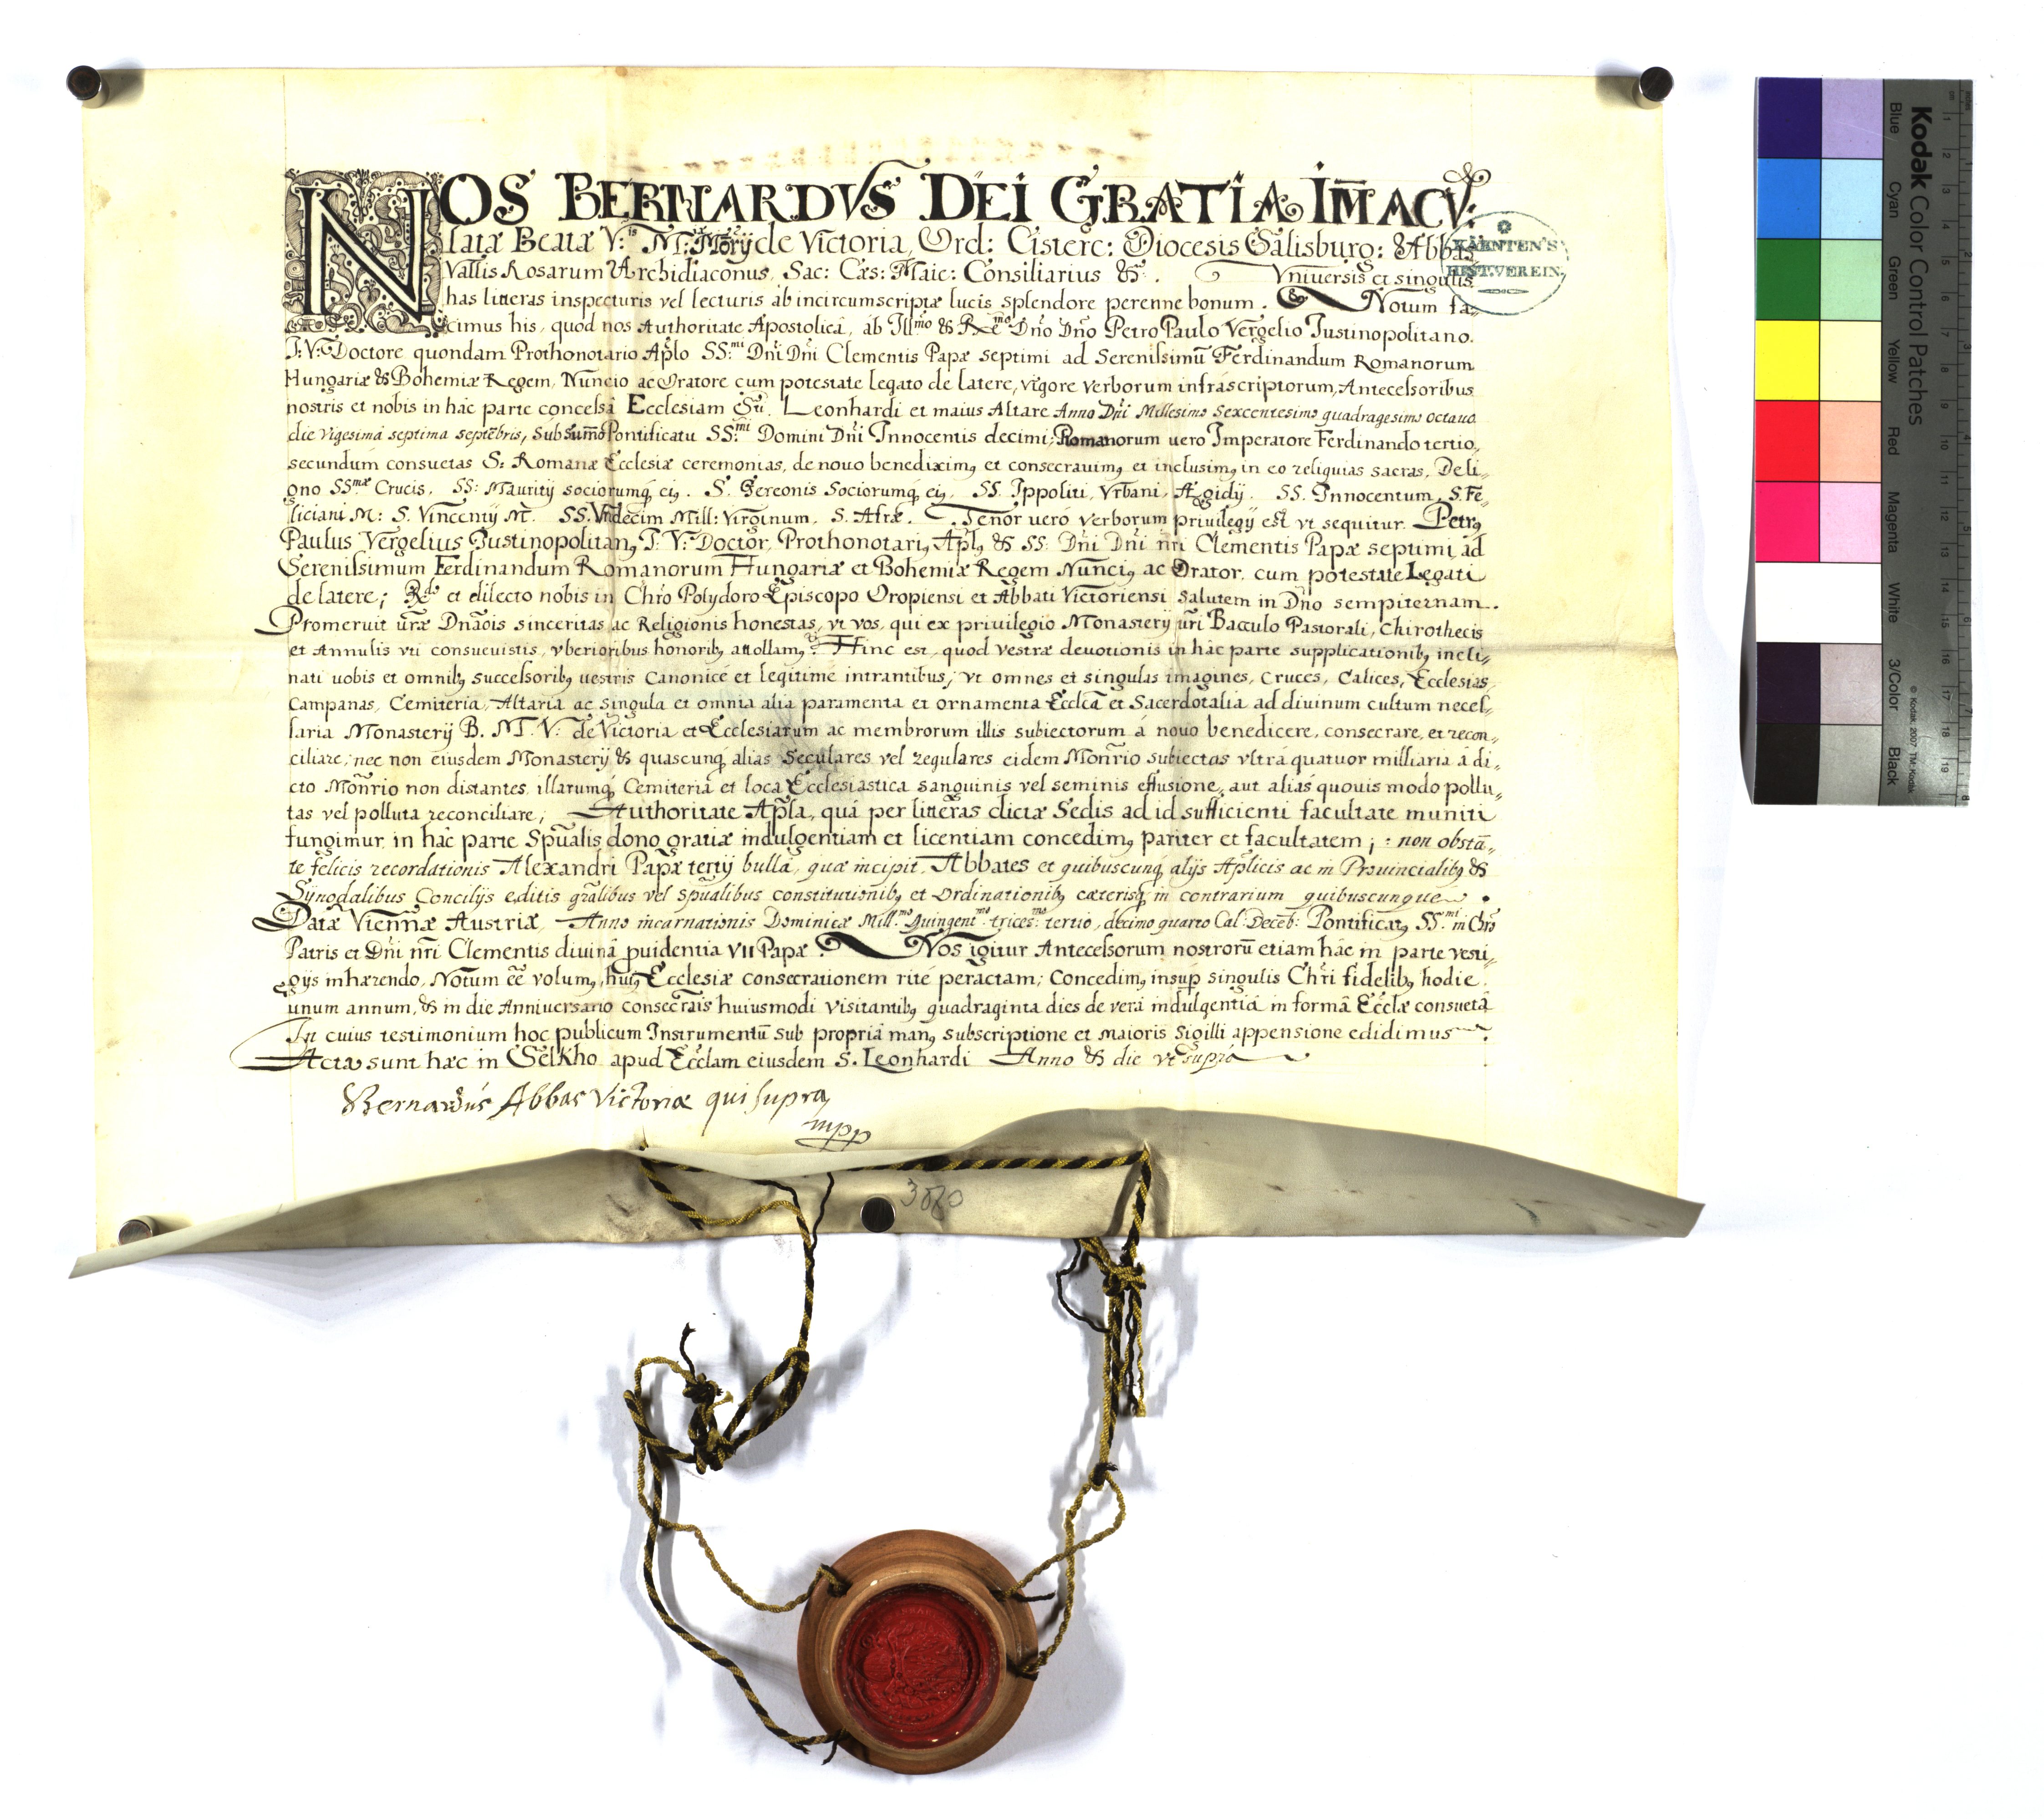 NOS BERNARDVS DEI GRATIA IM̄ACV:
latæ Beatæ V:is M: Mariȩ de Victoria, Ord: Cisterc: Diocesis Salisburg: Abbas
Vallis Rosarum Archidiaconus, Sac: Cæs: Maie: Consiliarius &. Vniuersis et singulis
has litteras inspecturis vel lecturis ab incircumscriptæ lucis splendore perenne bonum. Notum fa„
cimus his, quod nos Authoritate Apostolicâ, ab Ill:mo & R:mo Dn̄o Dn̄o Petro Paulo Vergelio Iustinopolitano.
I: V: Doctore quondam Prothonotario Ap̄lo SS:mi Dn̄i Dn̄i Clementis Papæ septimi ad Serenissimū Ferdinandum Romanorum
Hungariæ & Bohemiæ Regem, Nuncio ac Oratore cum potestate legato de latere, vigore verborum infrascriptorum, Antecessoribus
nostris et nobis in hâc parte concessâ Ecclesiam S:ti Leonhardi et maius Altare Anno Dn̄i Millesimo Sexcentesimo quadragesimo octauo
die vigesimâ septima septēbris, sub sum̄o Pontificatu SS:mi Domini Dn̄i Innocentis decimi; Romanorum uero Imperatore Ferdinando tertio,
secundum consuetas S: Romanæ Ecclesiæ ceremonias, de nouo benediximꝰ et consecrauimꝰ et inclusimꝰ in eo reliquias sacras, De li„
gno SS:mæ Crucis, SS: Mauritij sociorumq́ eiꝰ. S. Gereonis Sociorumq́ eiꝰ. SS. Ippoliti, Vrbani, Ægidij. SS. Innocentum, S. Fe„
liciani M: S. Vincentij M. SS. Vndecim Mill: Virginum, S. Afræ. Tenor uerò verborum priuilegij est vt sequitur. Petrꝰ
Paulus Vergelius Iustinopolitanꝰ I: V: Doctor, Prothonotariꝰ Ap̄lꝰ & SS: Dn̄i Dn̄i nr̄i Clementis Papæ septimi, ad
Serenissimum Ferdinandum Romanorum Hungariæ et Bohemiæ Regem Nunciꝰ ac Orator, cum potestate Legati
de latere; R:do et dilecto nobis in Chr̄o Polydoro Episcopo Oropiensi et Abbati Victoriensi salutem in Dn̄o sempiternam.
Promeruit ur̄æ Dn̄aōis sinceritas ac Religionis honestas, vt vos, qui ex priuilegio Monasterij ur̄i Bacculo Pastorali, Chirothecis
et Annulis vti consueuistis, vberioribus honoribꝰ attollamꝰ. Hinc est, quod vestræ deuotionis in hâc parte supplicationibꝰ incli„
nati uobis et omnibꝰ successoribꝰ uestris Canonicè et legitimè intrantibus, vt omnes et singulas imagines, Cruces, Calices, Ecclesias,
Campanas, Cemiteria, Altaria ac singula et omnia alia paramenta et ornamenta Ecclēa et Sacerdotalia ad diuinum cultum neces„
saria Monasterij B. M. V: de Victoria et Ecclesiarum ac membrorum illis subiectorum á nouo benedicere, consecrare, et recon„
ciliare; nec non eiusdem Monasterij & quascunq́ alias Seculares vel regulares eidem Mōnrio subiectas vltrá quatuor milliaria á di„
cto Mōnrio non distantes, illarumq́ Cemiteria et loca Ecclesiastica sanguinis vel seminis effusione, aut aliás quouis modo pollu„
tas vel polluta reconciliare; Authoritate Ap̄la, quâ per litteras dictæ Sedis ad id sufficienti facultate muniti
fungimur, in hâc parte Sp̄ualis dono gratiæ indulgentiam et licentiam concedimꝰ pariter et facultatem; : non obstā„
te felicis recordationis Alexandri Papæ tertij bullâ, quæ incipit, Abbates et quibuscunq́ alijs Ap̄licis ac in Prouincialibꝰ &
Synodalibus Concilijs editis gr̄alibus vel sp̄ualibus constitutionibꝰ et Ordinationibꝰ cæterisq́ in contrarium quibuscunque.
Datæ Viennæ Austriæ, Anno incarnationis Dominicæ Mill:mo Quingent:mo trices:mo tertio, decimo quarto Cal: Decēb: Pontificatꝰ SS:mi in Chr̄o
Patris et Dn̄i nr̄i Clementis diuinâ ꝓuidentia VII Papæ. Nos igitur Antecessorum nostrorū etiam hâc in parte vesti„
gijs inhærendo, Notum eē̄ volumꝰ, huiꝰ Ecclesiæ consecrationem ritè peractam; Concedimꝰ insuꝑ singulis Chr̄i fidelibꝰ hodie
unum annum, & in die Anniuersario consecrāis huiusmodi visitantibꝰ quadraginta dies de verâ indulgentiâ in formâ Ecclæ consuetâ
In cuius testimonium hoc publicum Instrumentū sub propriâ manꝰ subscriptione et maioris Sigilli appensione edidimus.
Acta sunt hæc in Selkho apud Ecclam eiusdem S. Leonhardi Anno & die vt supra
Bernardus Abbas Victoriæ qui supra
mpp
KÄRNTEN'S
HIST. VEREIN.
Kodak Color Control Patches
Blue Cyan Green Yellow Red Magenta White 3/Color Black
© Kodak, 2007 TM: Kodak
cm 1 2 3 4 5 6 7 8 9 10 11 12 13 14 15 16 17 18 19
inches 1 2 3 4 5 6 7 8